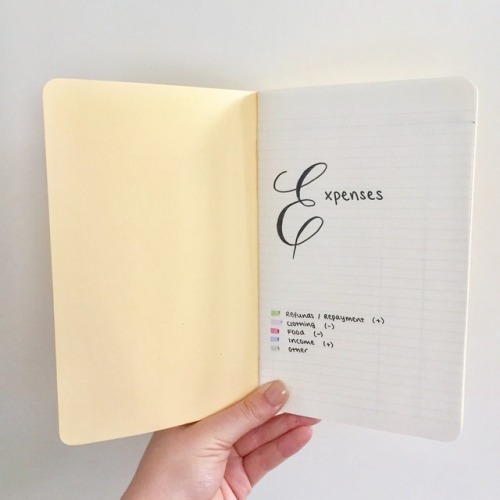 Expenses
Refunds / Repayment (+)
Clothing (-)
Food (-)
Income (+)
Other